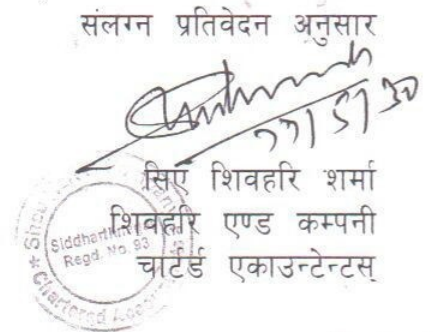 संलग्न प्रतिवेदन अनुसार
सिए शिवहरि शर्मा
शिवहरि एण्ड कम्पनी
चार्टर्ड एकाउन्टेन्टस्
Regd. No. 93
Chartered